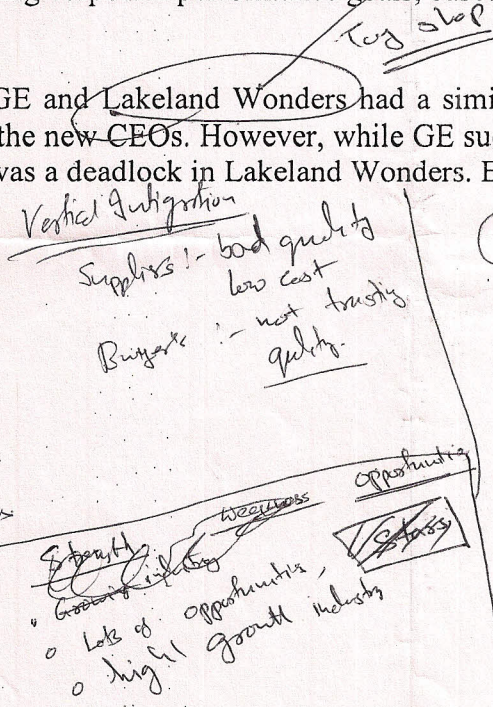 Toy shop
GE and Lakeland Wonders had a simi
the new CEOs. However, while GE su
was a deadlock in Lakeland Wonders. E
Vertical Intigration
Suppliers :- bad quality
low cost
Buyer's :- not trusting
quality.
opportunities
Weekness
Strength
Stass
Growing industry
Lots of opportunities,
high growth industry